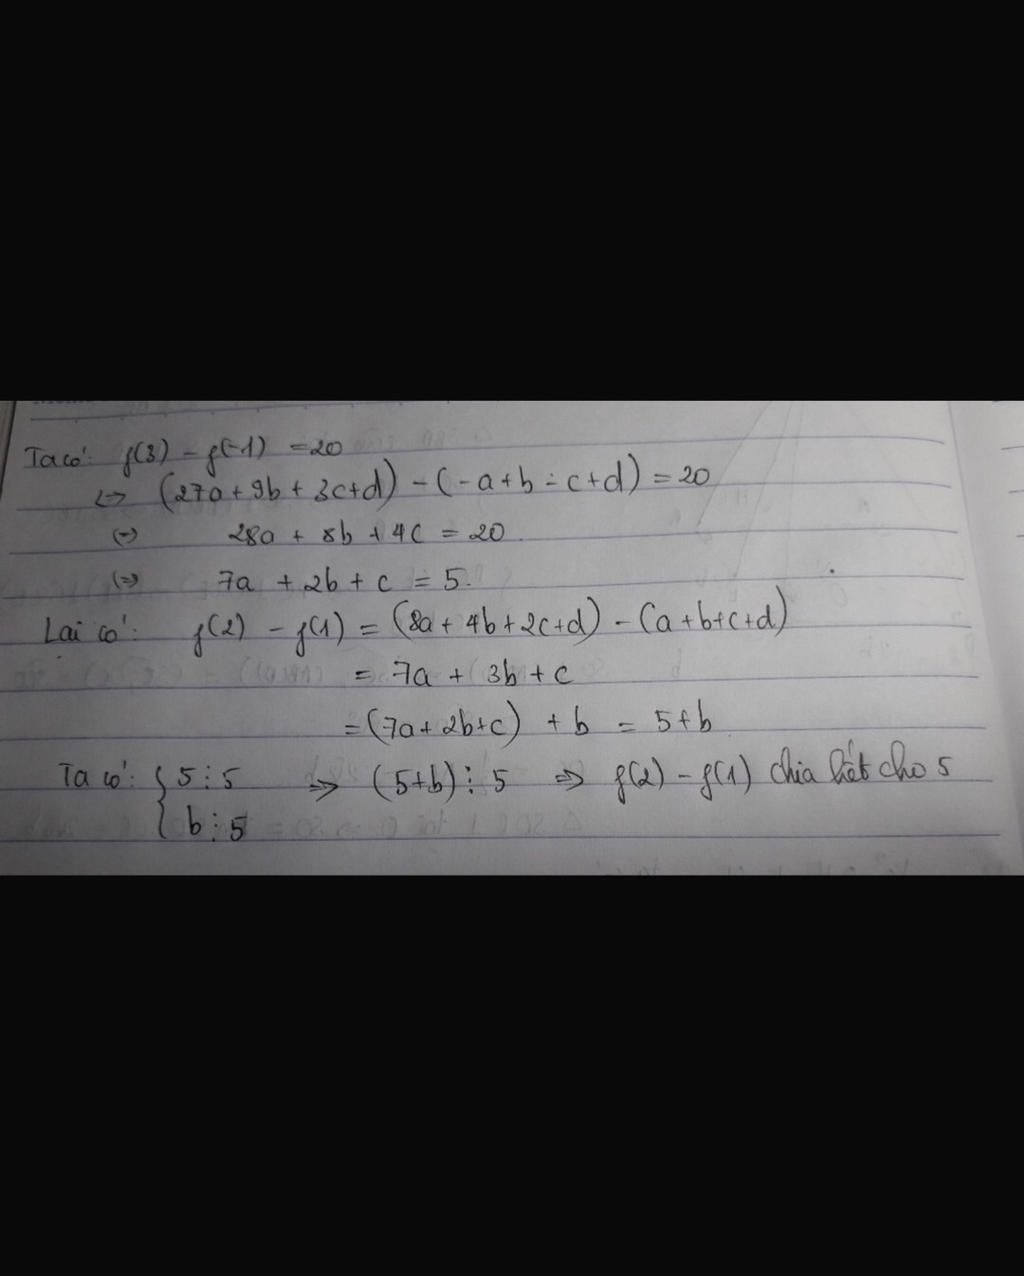 Ta có: f(3) - f(-1) = 20
<=> (27a + 9b + 3c+d) - (-a+b-c+d) = 20
(=) 28a + 8b + 4c = 20.
(=) 7a + 2b + c = 5.
Lại có: f(2) - f(1) = (8a + 4b + 2c + d) - (a+b+c+d)
= 7a + 3b + c
= (7a+2b+c) + b = 5+b
Ta có: { 5 ⋮ 5 => (5+b) ⋮ 5 => f(2) - f(1) chia hết cho 5
b ⋮ 5